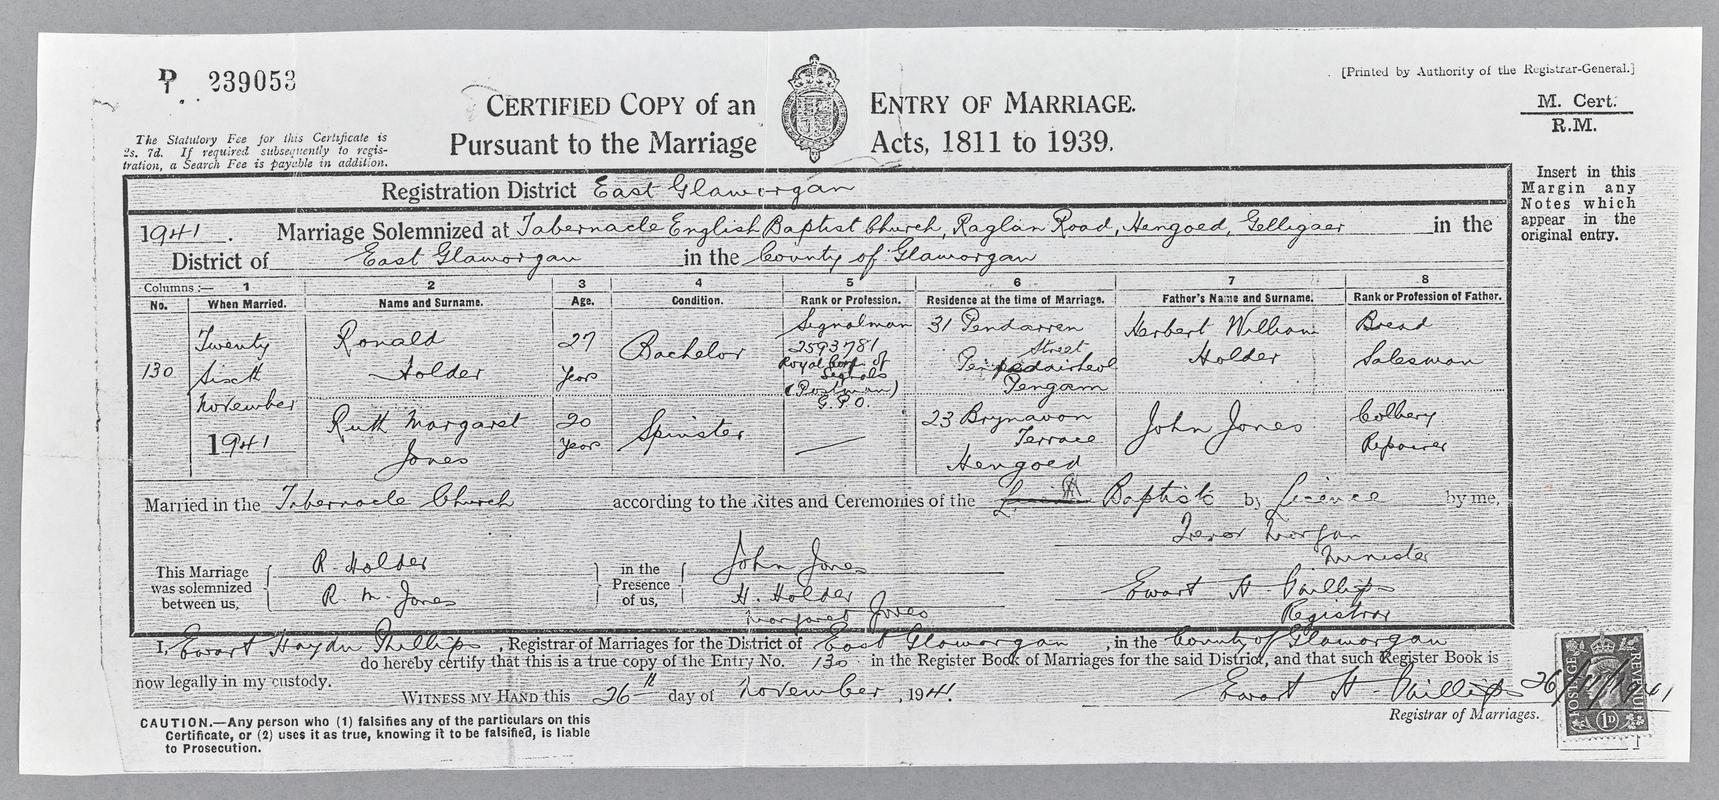 P 239053
[Printed by Authority of the Registrar-General.]
CERTIFIED COPY of an ENTRY OF MARRIAGE.
Pursuant to the Marriage Acts, 1811 to 1939.
M. Cert.
R.M.
The Statutory Fee for this Certificate is
2s. 7d. If required subsequently to regis-
tration, a Search Fee is payable in addition.
Insert in this
Margin any
Notes which
appear in the
original entry.
Registration District East Glamorgan
1941. Marriage Solemnized at Tabernacle English Baptist Church, Raglan Road, Hengoed, Gelligaer in the
District of East Glamorgan in the County of Glamorgan
Columns :— 1 2 3 4 5 6 7 8
No. When Married. Name and Surname. Age. Condition. Rank or Profession. Residence at the time of Marriage. Father's Name and Surname. Rank or Profession of Father.
130
Twenty
Sixth
November
1941
Ronald
Holder
27
years
Bachelor
Signalman
2593781
Royal Corps of
Signals
(Postman)
G.P.O.
31 Pendarren
Street
Pengam
Herbert William
Holder
Bread
Salesman
Ruth Margaret
Jones
20
years
Spinster
—
23 Brynavon
Terrace
Hengoed
John Jones
Colliery
Repairer
Married in the Tabernacle Church according to the Rites and Ceremonies of the Baptists by Licence by me,
Trevor Morgan
Minister
This Marriage
was solemnized
between us,
R. Holder
R. M. Jones
in the
Presence
of us,
John Jones
H. Holder
Margaret Jones
Ewart H. Phillips
Registrar
I, Ewart Haydn Phillips, Registrar of Marriages for the District of East Glamorgan, in the County of Glamorgan
do hereby certify that this is a true copy of the Entry No. 130 in the Register Book of Marriages for the said District, and that such Register Book is
now legally in my custody.
WITNESS MY HAND this 26th day of November, 1941.
Ewart H. Phillips 26/11/1941
Registrar of Marriages.
CAUTION.—Any person who (1) falsifies any of the particulars on this
Certificate, or (2) uses it as true, knowing it to be falsified, is liable
to Prosecution.
POSTAGE
REVENUE
1D